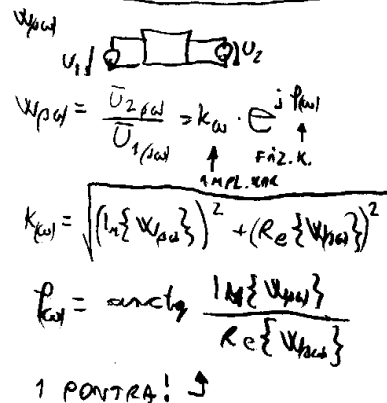 W(jω)
U₁ U₂
W(jω) = Ū₂(jω) / Ū₁(jω) = k(ω) · e^{jφ(ω)}
FÁZ. K.
AMPL. KAR
K(ω) = √((Im{W(jω)})² + (Re{W(jω)})²)
φ(ω) = arctg Im{W(jω)} / Re{W(jω)}
1 PONTRA!